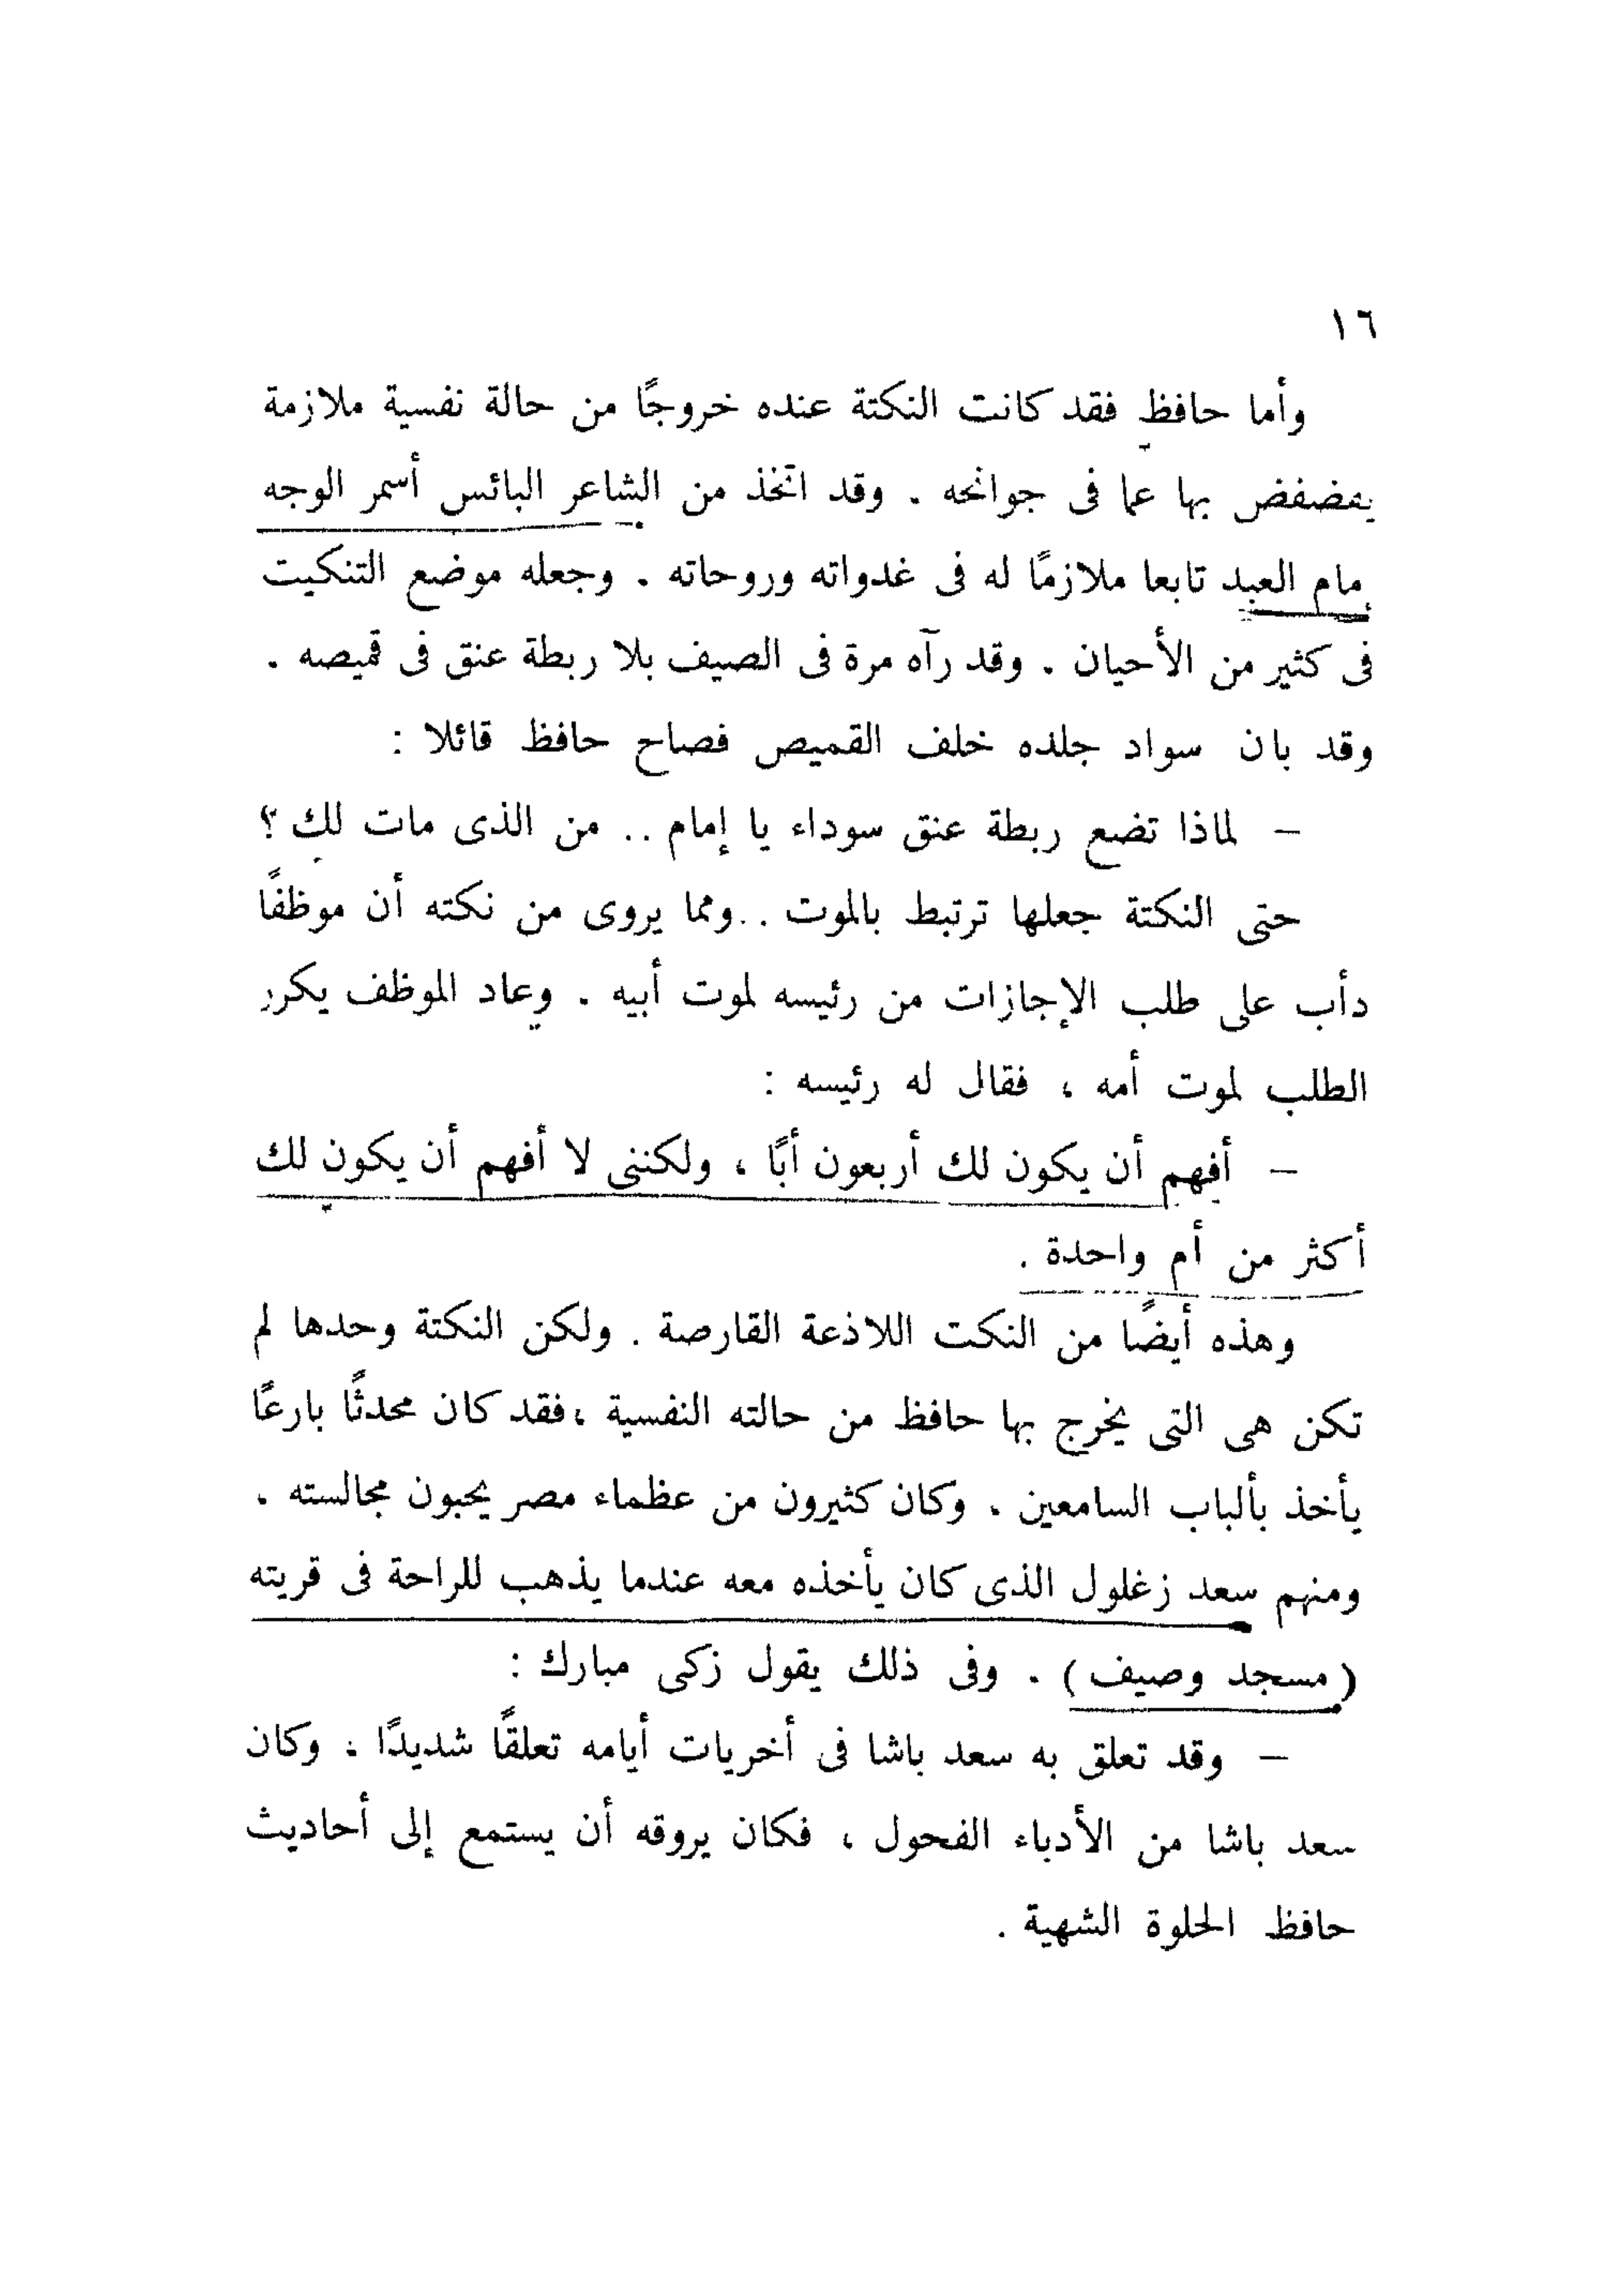 ١٦
وأما حافظ فقد كانت النكتة عنده خروجًا من حالة نفسية ملازمة
يفضفض بها عما فى جوانحه . وقد اتخذ من الشاعر البائس أسمر الوجه
إمام العبد تابعا ملازمًا له فى غدواته وروحاته . وجعله موضع التنكيت
فى كثير من الأحيان . وقد رآه مرة فى الصيف بلا ربطة عنق فى قميصه .
وقد بان سواد جلده خلف القميص فصاح حافظ قائلا :
– لماذا تضع ربطة عنق سوداء يا إمام .. من الذى مات لك ؟
حتى النكتة جعلها ترتبط بالموت .. ومما يروى من نكته أن موظفًا
دأب على طلب الإجازات من رئيسه لموت أبيه . وعاد الموظف يكرر
الطلب لموت أمه ، فقال له رئيسه :
– أفهم أن يكون لك أربعون أبًا ، ولكننى لا أفهم أن يكون لك
أكثر من أم واحدة .
وهذه أيضًا من النكت اللاذعة القارصة . ولكن النكتة وحدها لم
تكن هى التى يخرج بها حافظ من حالته النفسية ، فقد كان محدثًا بارعًا
يأخذ بألباب السامعين . وكان كثيرون من عظماء مصر يحبون مجالسته .
ومنهم سعد زغلول الذى كان يأخذه معه عندما يذهب للراحة فى قريته
( مسجد وصيف ) . وفى ذلك يقول زكى مبارك :
– وقد تعلق به سعد باشا فى أخريات أيامه تعلقًا شديدًا ، وكان
سعد باشا من الأدباء الفحول ، فكان يروقه أن يستمع إلى أحاديث
حافظ الحلوة الشهية .